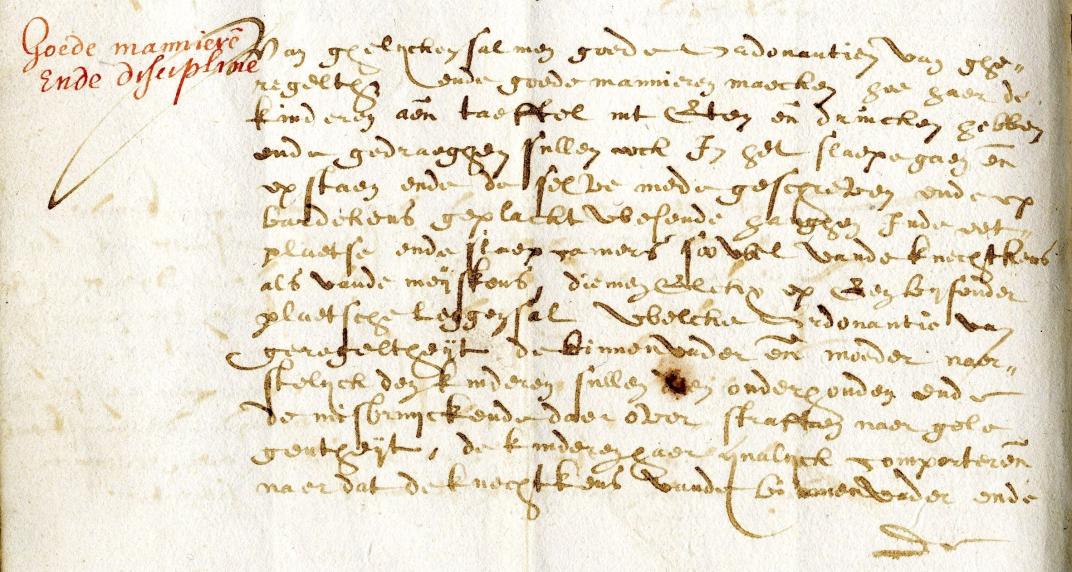 Goede mannierē
Ende discipline
Van ghelycken salmen goede Ordonantien van ghe-
regeltht ende goede mannieren maecken hoe haer de
kinderen aen taeffel int Eten en drincken hebben
ende gedraeghen sullen oock In het slaepe gaen en
op staen ende de selve mede geschreven ende op
bardekens geplackt wesende hanghen Inde eet-
plaetse ende slaep camers soo wel vande knechtkens
als vande meyskens, diemen Elck op Een bysonder
plaetsche leggen sal welcke Ordonantie van
geregeltheyt de binnenvader en moeder naer-
stelyck den kinderen sullen doen onderhouden ende
de misbruyckende daer over straffen naer gele
gentheyt, de kinderen haer comporteren
naer dat de knechtkens vande binnenvader ende
de